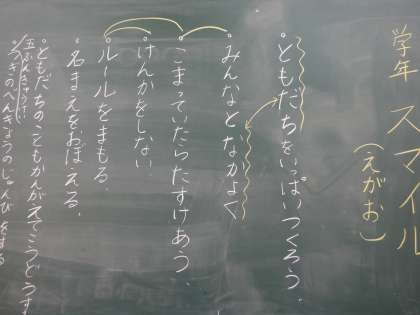 学年 スマイル
(えがお)
ともだちをいっぱいつくろう、
みんなとなかよく
こまっていたらたすけあう、
けんかをしない
ルールをまもる、
名まえをおぼえる、
ともだちのこともかんがえてこうどうす
つぎのべんきょうのじゅんびをする